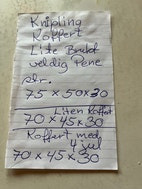 Knipling
Koffert
Lite Brukt
veldig Pene
str.
75 x 50 x 30
Liten Koffert
70 x 45 x 30
Koffert med
4 jul
70 x 45 x 30